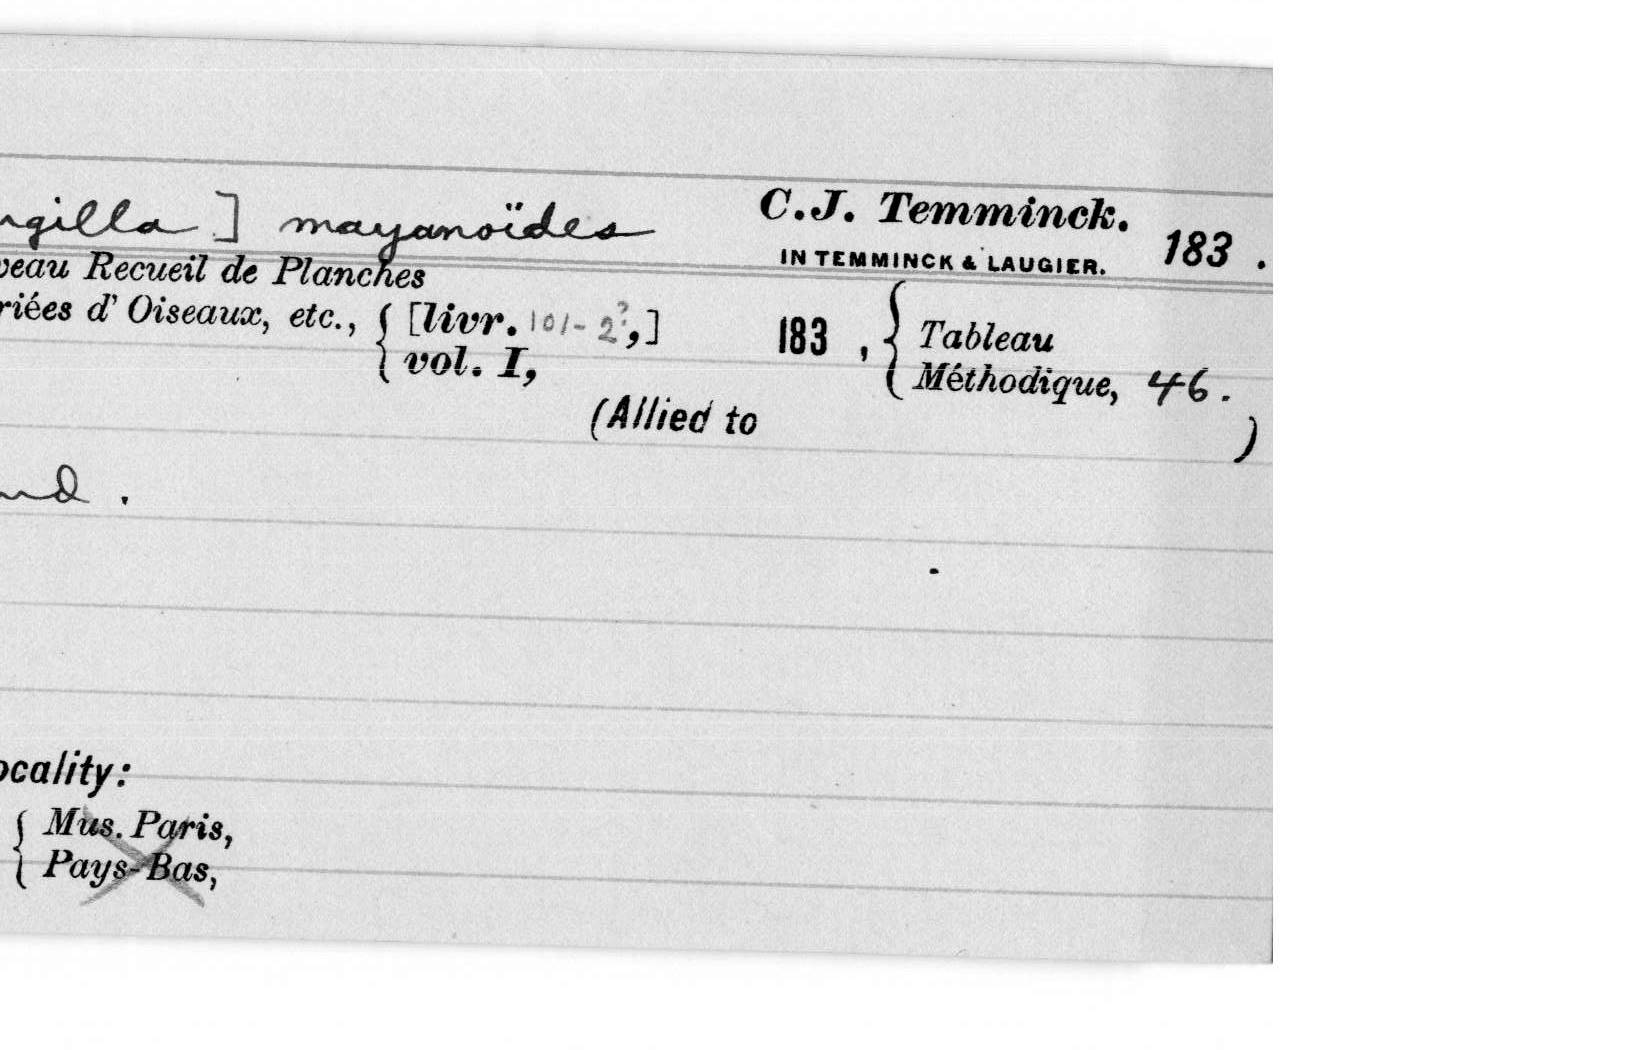 ngilla ] mayanoïdes C.J. Temminck. 183 .
IN TEMMINCK & LAUGIER.
veau Recueil de Planches
riées d' Oiseaux, etc., { [livr. 101-2?,] 183 , { Tableau
vol. I, Méthodique, 46 .
(Allied to )
nd .
ocality:
{ Mus. Paris,
Pays-Bas,